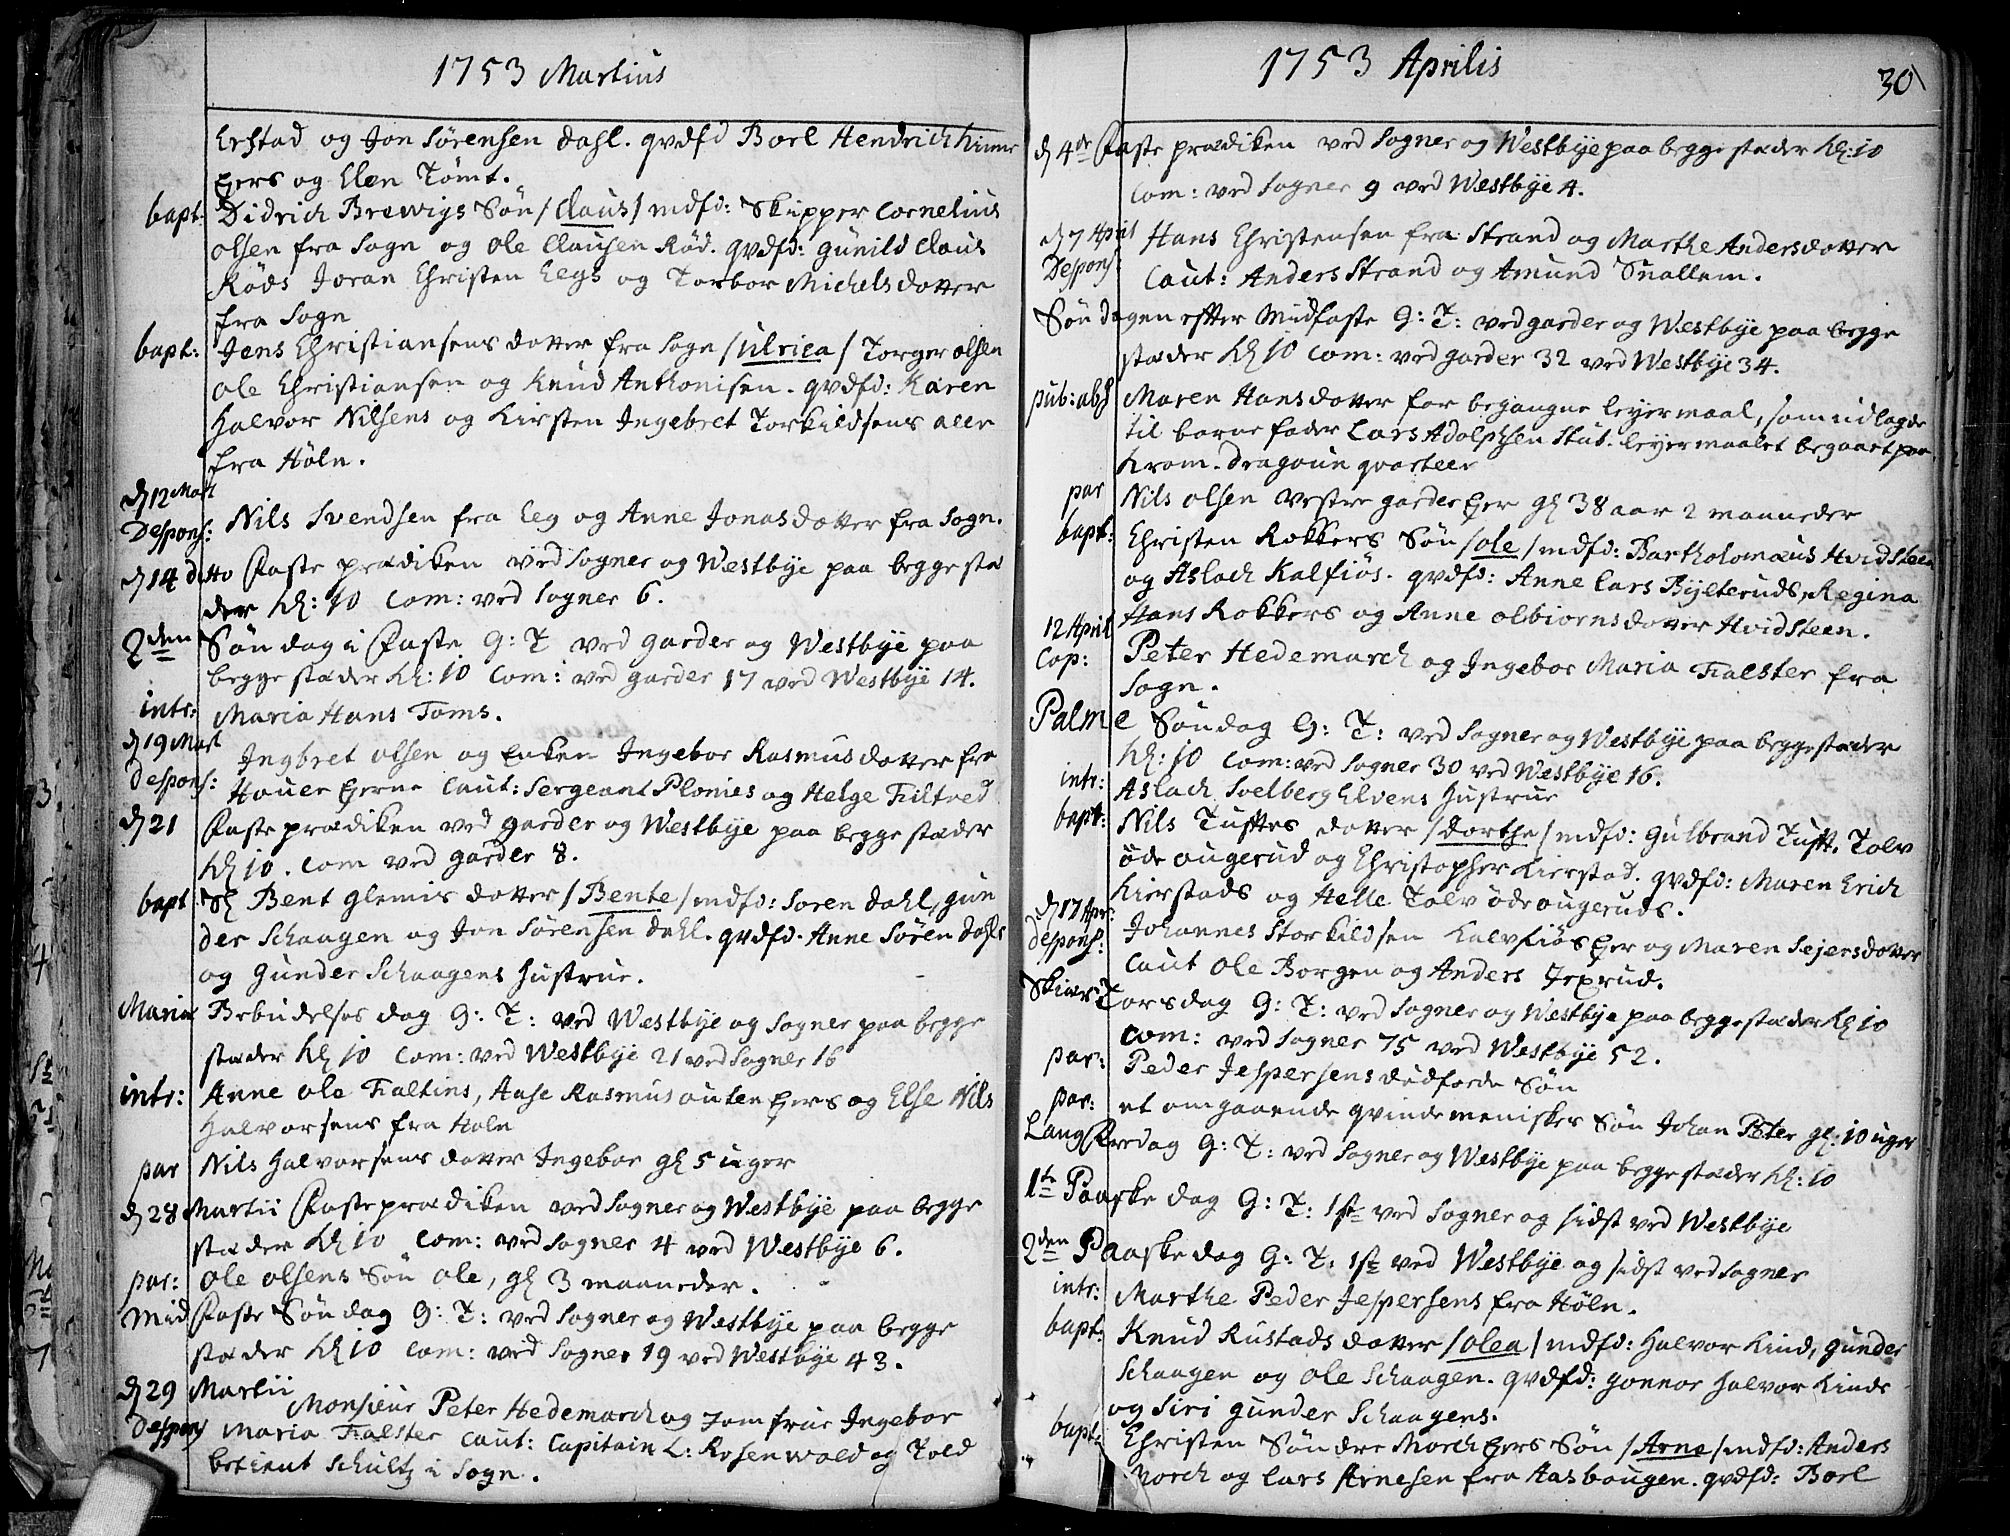 1753 Martius
Erstad og Jon Sørensen Dahl. qvdfd Borl Hendrich
Eiers og Elen Tømt.
bapt: Didrich Brewigs Søn /Claus/ mdfd: Skipper Cornelius
Olsen fra Sogn og Ole Clausen Rød. qvdfd: Gunild Claus
Røds Joran Christen Eegs og Torbor Michelsdotter
fra Sogn
bapt: Jens Christiansens dotter fra Sogn /Ulrica/ Torger Olsen
Ole Christiansen og Knud Anthonisen. qvdfd: Karen
Halvor Nilsens og Kirsten Ingebret Torkildsens alle
fra Høln.
d 12 Mart
Despons: Nils Svendsen fra Eeg og Anne Jonasdotter fra Sogn.
d 14 ditto Faste prædiken ved Sogner og Westbye paa begge stæ
der Kl: 10 Com: ved Sogner 6.
2den Søndag i Faste G: T ved Garder og Westbye paa
begge stæder Kl: 10 Com: ved Garder 17 ved Westbye 14.
intr: Maria Hans Toms.
d 19 Mart
Despons: Ingbret Olsen og Enken Ingebor Rasmusdotter fra
Houer Eierne Caut: Sergeant Plonies og Helge Filtved
d 21 Faste prædiken ved Garder og Westbye paa begge stæder
Kl 10. Com ved Garder 8.
bapt Sl Bent Glemis dotter /Bente/ mdfd: Soren Dahl, Gun
der Schaugen og Jon Sørensen Dahl. qvdfd. Anne Søren Dahls
og Gunder Schaagens Hustrue.
Mariæ Bebudelses dag G: T: ved Westbye og Sogner paa begge
stæder Kl 10 Com: ved Westbye 21 ved Sogner 16
intr: Anne Ole Faltins, Aase Rasmus Eiers og Else Nils
Halvorsens fra Holn
par Nils Halvorsens dotter Ingebor gl 5 uger
d 28 Martii Faste prædiken ved Sogner og Westbye paa begge
stæder Kl 10 Com: ved Sogner 4 ved Westbye 6.
par: Ole Olsens Søn Ole, gl 3 maaneder.
Mid Faste Søndag G: T: ved Sogner og Westbye paa begge
stæder Kl 10 Com: ved Sogner 19 ved Westbye 43.
d 29 Martii
Despons Monsieur Peter Hedemarch og Jomfrue Ingebor
Maria Falster Caut: Capitain L: Rosenwold og Told
betient Schultz i Sogn.
1753 Aprilis
30
d 4de Faste prædiken ved Sogner og Westbye paa begge stæder Kl: 10
Com: ved Sogner 9 ved Westbye 4.
d 7 April
Despons: Hans Christensen fra Strand og Marthe Andersdotter
Caut: Anders Strand og Amund Snallem.
Søndagen efter Midfaste G: T: ved Garder og Westbye paa begge
stæder Kl 10 Com: ved Garder 32 ved Westbye 34.
pub: abs Maren Hansdotter for begangne leyermaal, som udlagde
til barnefader Lars Adolphsen Stub: leyermaalet begaaet paa
Krom. Dragoun qvarteer
par Nils Olsen Vestre Garder Eier gl 38 aar 2 maaneder
bapt: Christen Rokkers Søn /Ole/ mdfd: Bartholomæus Hvidsteen
og Aslach Kalfiøs. qvdfd: Anne Lars Bylteruds, Regina
Hans Rokkers og Anne Olbiornsdotter Hvidsteen.
12 April
Cop: Peter Hedemarch og Ingebor Maria Falster fra
Sogn.
Palme Søndag G: T: ved Sogner og Westbye paa begge stæder
Kl: 10 Com: ved Sogner 30 ved Westbye 16.
intr: Aslach Soelberg Elvens Hustrue
bapt: Nils Tuftes dotter /Dorthe/ mdfd: Gulbrand Tuft. Tolv
Ødeougerud og Christopher Kierstad. qvdfd: Maren Erich
Kierstads og Helle Tolv Ødeougeruds.
d 17 Apr:
Despons: Johannes Storkildsen Kalvfiøs Eier og Maren Sejersdotter
Caut Ole Borgen og Anders Jexrud.
Skier Torsdag G: T: ved Sogner og Westbye paa begge stæder Kl 10
Com: ved Sogner 75 ved Westbye 52.
par: Peder Jespersens dødfødde Søn
par: et omgaaende qvindemeniskes Søn Johan Peter gl: 10 uger
Lang Fredag G: T: ved Sogner og Westbye paa begge stæder Kl: 10
1te Paaske dag G: T: 1ste ved Sogner og sidst ved Westbye
2den Paaske dag G: T: 1ste ved Westbye og sidst ved Sogner
intr: Marthe Peder Jespersens fra Høln.
bapt: Knud Rustads dotter /Olea/ mdfd: Halvor Kind, Gunder
Schaugen og Ole Schaugen. qvdfd: Gonnor Halvor Kinds
og Siri Gunder Schaugens.
bapt: Christen Søndre Morch Eiers Søn /Arne/ mdfd: Anders
Morch og Lars Arnesen fra Aasbougen. qvdfd: Borl